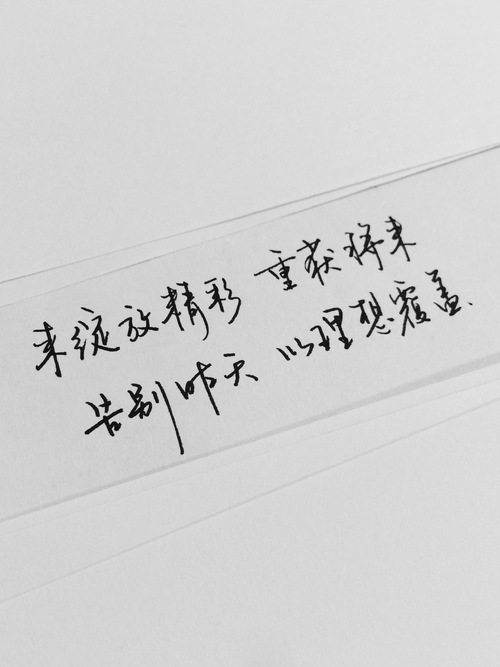 来绽放精彩 重获将来
告别昨天 以理想覆盖